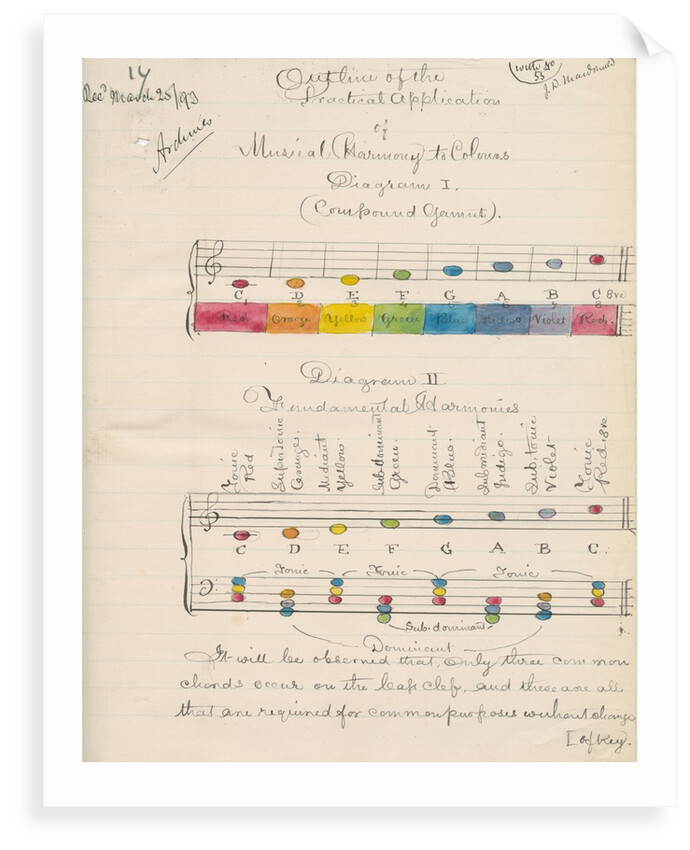 14
Recd March 25/93
Archives
J. D. Macdonald
Outline of the
Practical Application
of
Musical Harmony to Colours
Diagram I.
(Compound Gamut).
C D E F G A B C 8ve
1 2 3 4 5 6 7 8
Red Orange Yellow Green Blue Indigo Violet Red.
Diagram II
Fundamental Harmonies
Tonic Red
Supertonic Orange.
Mediant Yellow.
Subdominant Green.
Dominant Blue.
Submediant Indigo.
Sub.tonic Violet.
Tonic Red. 8ve
C D E F G A B C
Tonic Tonic Tonic
Sub.dominant
Dominant
It will be observed that, only three common
chords occur on the bass clef, and these are all
that are required for common purposes without change
[of key.